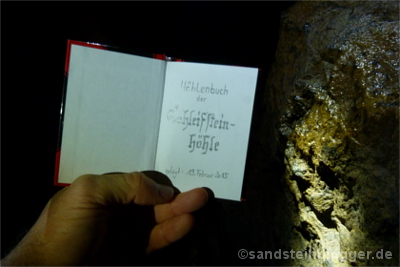 Höhlenbuch
der
Schleifstein-
höhle
13. Februar
©sandsteinblogger.de